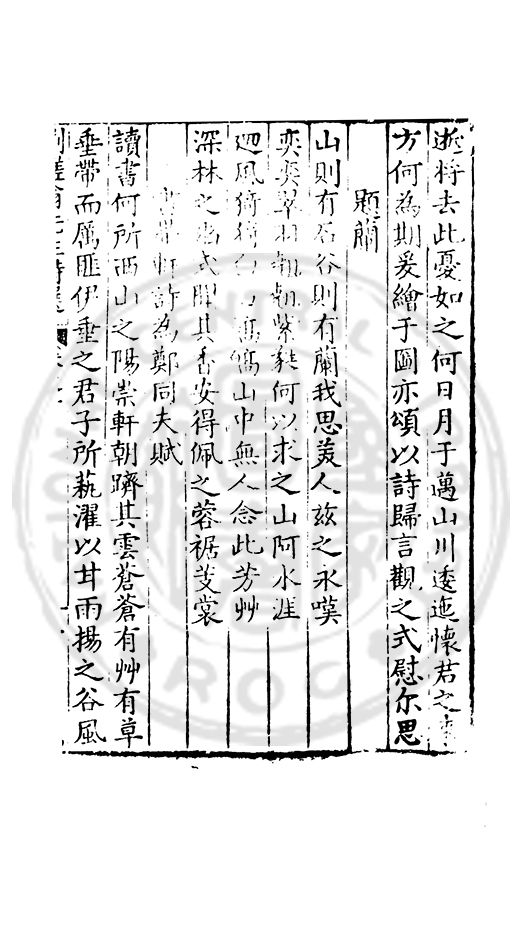 逝將去此憂如之何日月于邁山川逶迤懷君之
方何為期爰繪于圖亦頌以詩歸言觀之式慰尔思
題蘭
山則有石谷則有蘭我思美人玆之永嘆
奕奕翠羽翹翹紫莖何以求之山阿水涯
迎風猗猗山中無人念此芳艸
深林之幽式聞其香安得佩之蓉裾芰裳
書帶軒詩為鄭同夫賦
讀書何所西山之陽崇軒朝躋其雲蒼蒼有艸有草
垂帶而厲匪伊垂之君子所蓺濯以甘雨揚之谷風